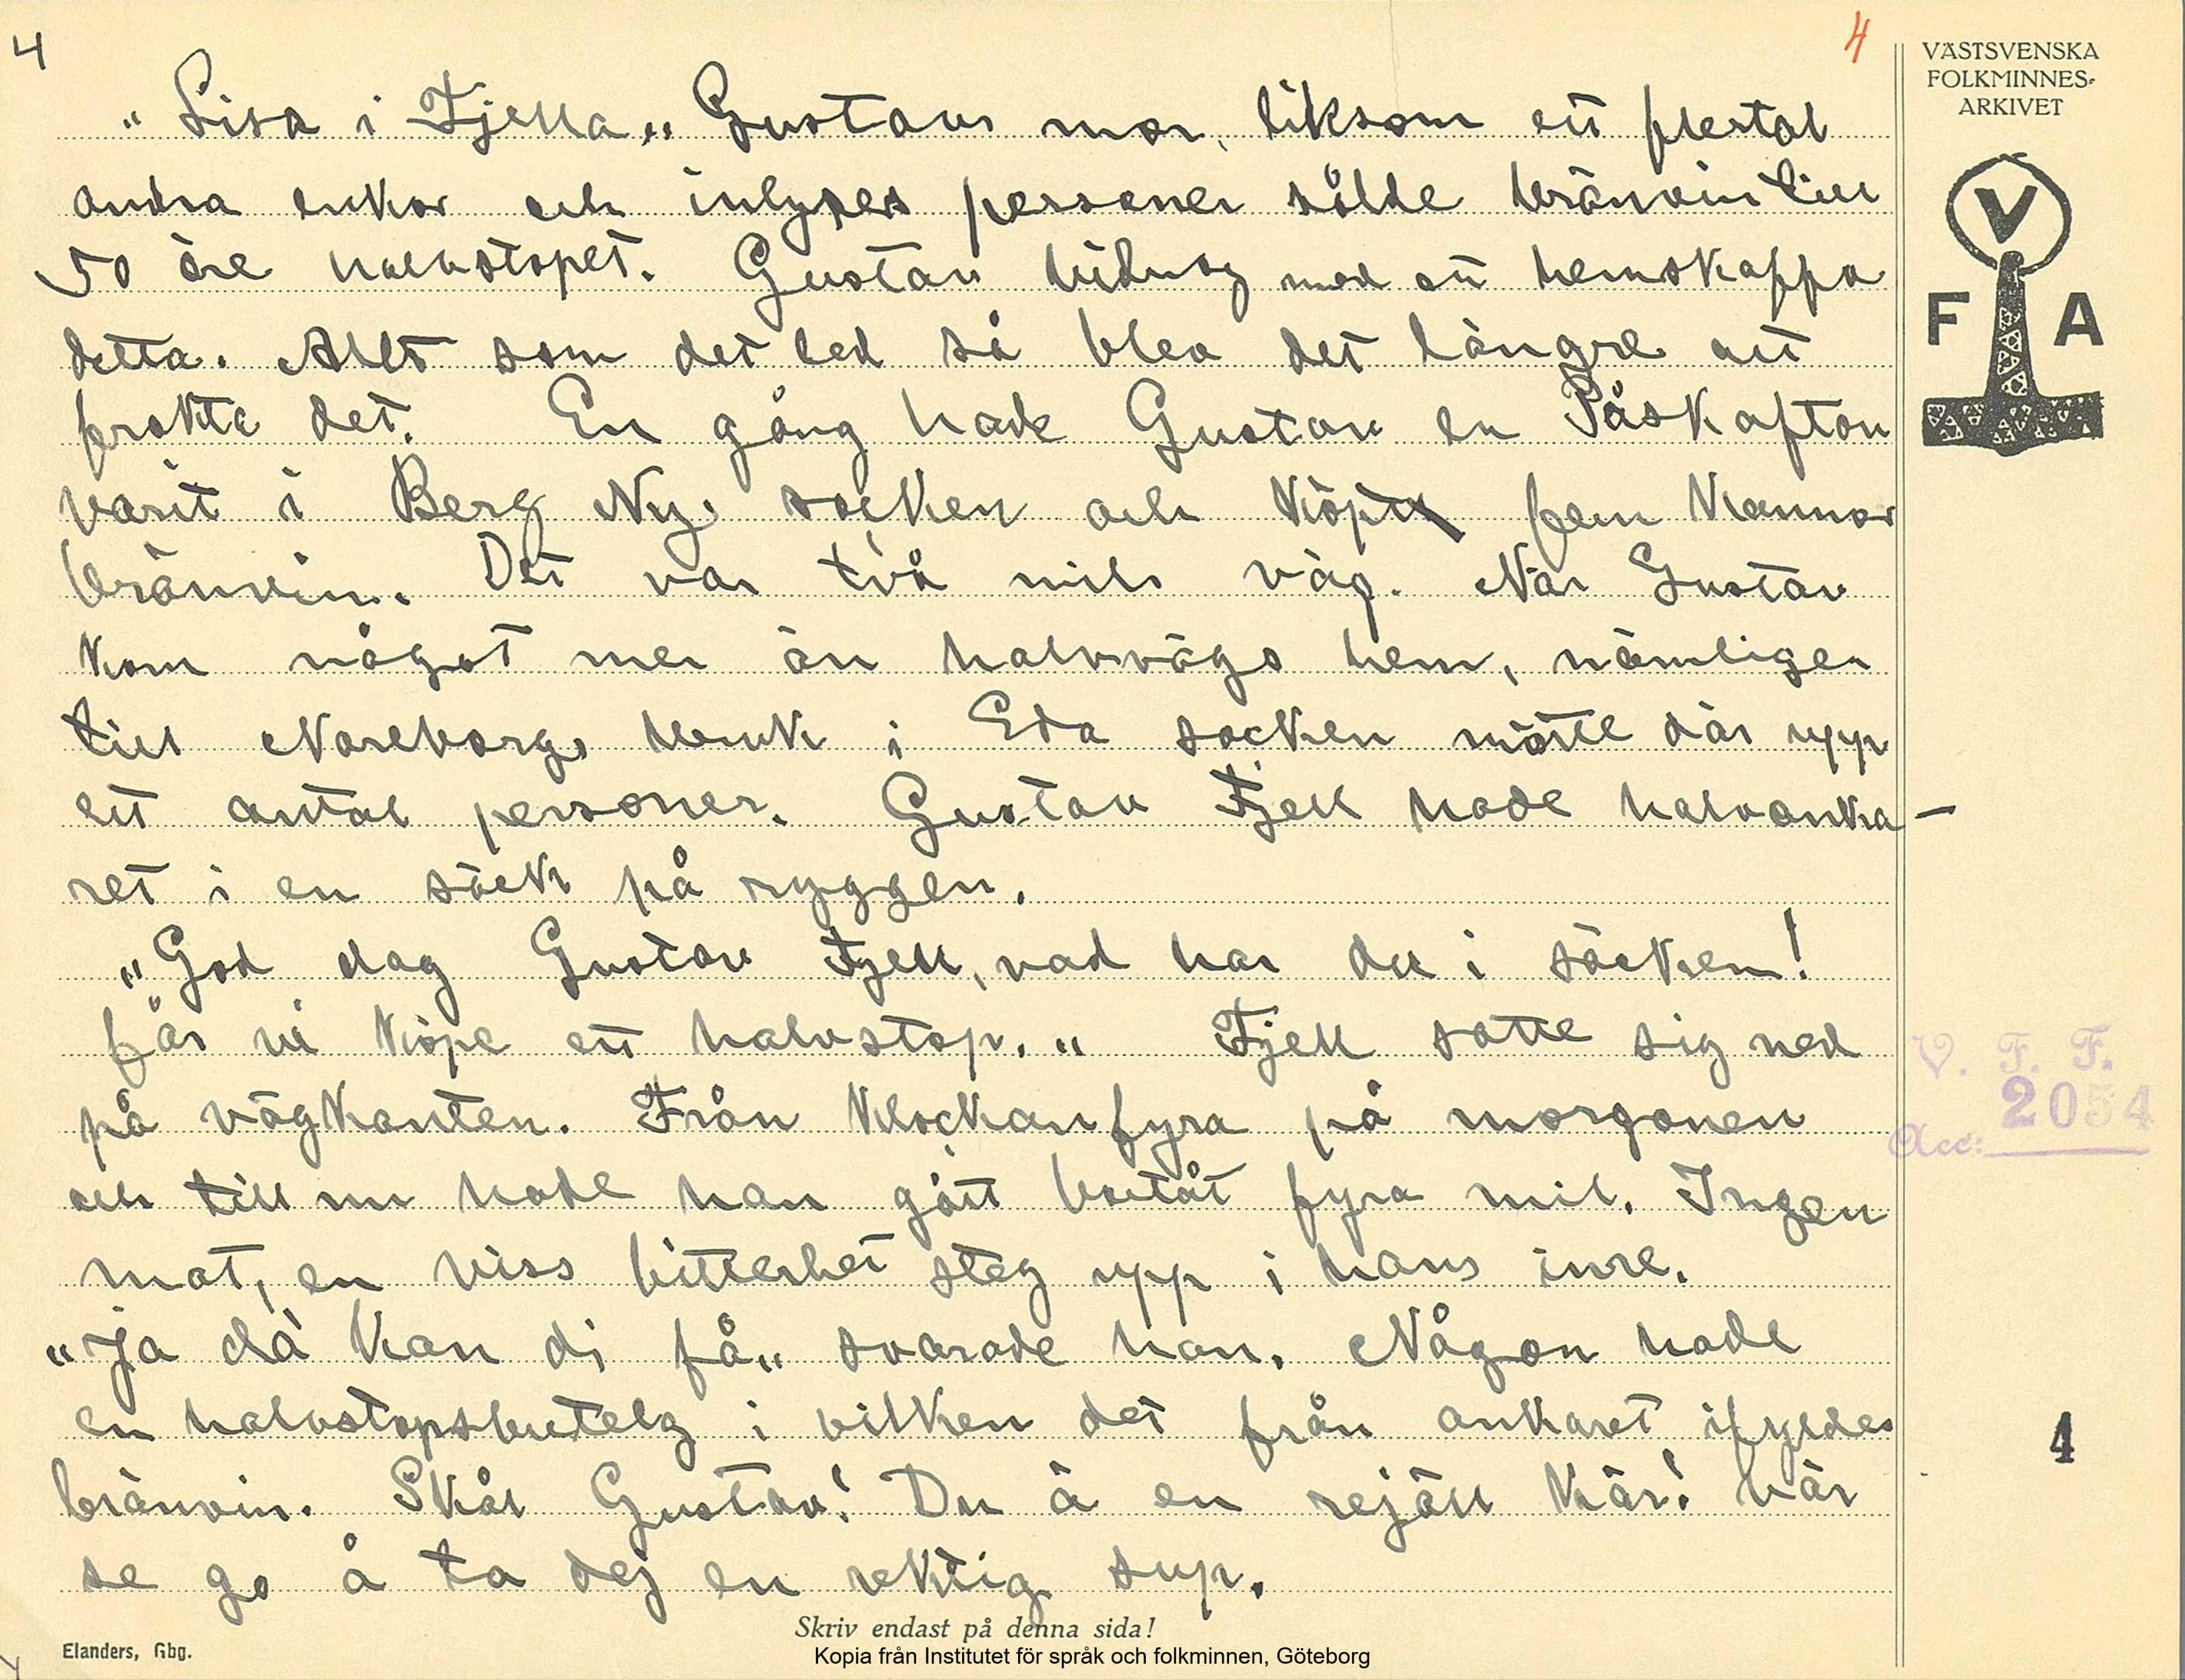 4
4
VÄSTSVENSKA
FOLKMINNES-
ARKIVET
V
F A
"Lisa i Fjella" Gustavs mor, liksom ett flertal
andra enkor och inhyses personer sålde bränvin till
50 öre halvstopet. Gustav bidrog med att hemskaffa
detta. Allt som det led så blev det längre att
frakta det. En gång hade Gustav en Påskafton
varit i Berg Ny socken och köpt fem kannor
bränvin. Det var två mils väg. När Gustav
kom något mer än halvvägs hem, nämligen
till Noreborgs bruk i Eda socken mötte där upp
ett antal personer. Gustav Fjell hade halvanka-
ret i en säck på ryggen.
"God dag Gustav Fjell, vad har du i säcken!
får vi köpe ett halvstop." Fjell satte sig ned
på vägkanten. Från klockan fyra på morgonen
och till nu hade han gått bortåt fyra mil. Ingen
mat, en viss bitterhet steg upp i hans inre.
"Ja dä kan di få" svarade han. Någon hade
en halvstopsbutelg i vilken det från ankaret ifyldes
bränvin. Skål Gustav! Du ä en rejäll kär! Vär
se go å ta dej en rektig sup.
V. F. F.
Acc: 2054
4
Skriv endast på denna sida!
Elanders, Gbg.
Kopia från Institutet för språk och folkminnen, Göteborg